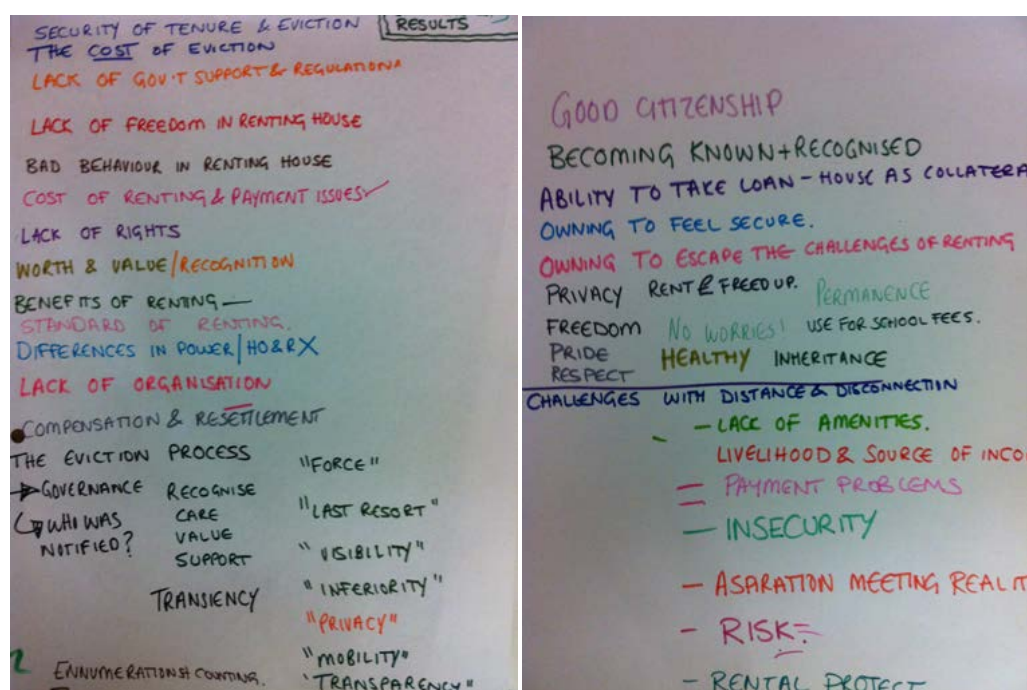 SECURITY OF TENURE & EVICTION
RESULTS
THE COST OF EVICTION
LACK OF GOV'T SUPPORT & REGULATION
LACK OF FREEDOM IN RENTING HOUSE
BAD BEHAVIOUR IN RENTING HOUSE
COST OF RENTING & PAYMENT ISSUES
LACK OF RIGHTS
WORTH & VALUE/RECOGNITION
BENEFITS OF RENTING —
STANDARD OF RENTING.
DIFFERENCES IN POWER/HO&RX
LACK OF ORGANISATION
COMPENSATION & RESETTLEMENT
THE EVICTION PROCESS
GOVERNANCE
WHO WAS
NOTIFIED?
RECOGNISE
CARE
VALUE
SUPPORT
TRANSIENCY
"FORCE"
"LAST RESORT"
"VISIBILITY"
"INFERIORITY"
"PRIVACY"
"MOBILITY"
"TRANSPARENCY"
2 ENNUMERATIONS+ COUNTING.
GOOD CITIZENSHIP
BECOMING KNOWN+RECOGNISED
ABILITY TO TAKE LOAN – HOUSE AS COLLATERA
OWNING TO FEEL SECURE.
OWNING TO ESCAPE THE CHALLENGES OF RENTING
PRIVACY RENT & FREED UP. PERMANENCE
FREEDOM NO WORRIES! USE FOR SCHOOL FEES.
PRIDE HEALTHY INHERITANCE
RESPECT
CHALLENGES WITH DISTANCE & DISCONNECTION
– LACK OF AMENITIES.
LIVELIHOOD & SOURCE OF INCO
= PAYMENT PROBLEMS
– INSECURITY
– ASARATION MEETING REALIT
– RISK
– RENTAL PROTECT